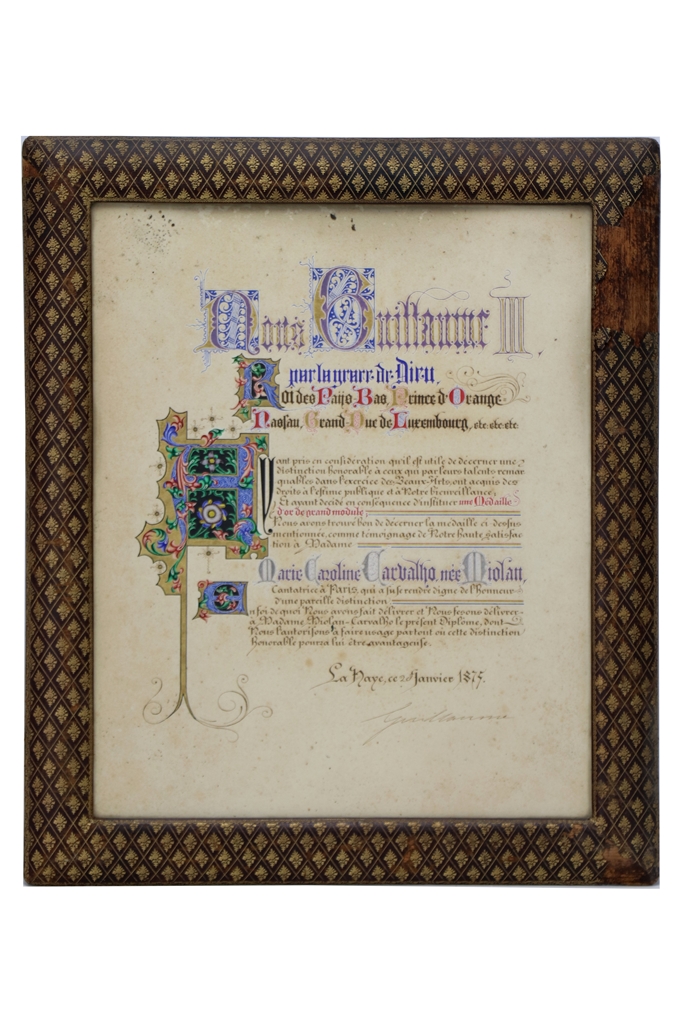 Nous Guillaume III,
par la grace de Dieu,
Roi des Pays Bas, Prince d'Orange
Nassau, Grand Duc de Luxembourg, etc etc etc
Ayant pris en considération qu'il est utile de décerner une
distinction honorable à ceux qui par leurs talents remar
quables dans l'exercice des Beaux-Arts, ont acquis des
droits à l'estime publique et à Notre bienveillance;
Et ayant décidé en conséquence d'instituer une Médaille
d'or de grand module;
Nous avons trouvé bon de décerner la medaille ci dessus
mentionnée, comme témoignage de Notre haute satisfac
tion à Madame
Marie Caroline Carvalho, née Miolan,
Cantatrice à Paris, qui a su se rendre digne de l'honneur
d'une pareille distinction
En foi de quoi Nous avons fait délivrer et Nous fesons délivrer
à Madame Miolan-Carvalho le présent Diplôme, dont
Nous l'autorisons à faire usage partout où cette distinction
honorable pourra lui être avantageuse.
La Haye, ce Janvier 1875.
Guillaume